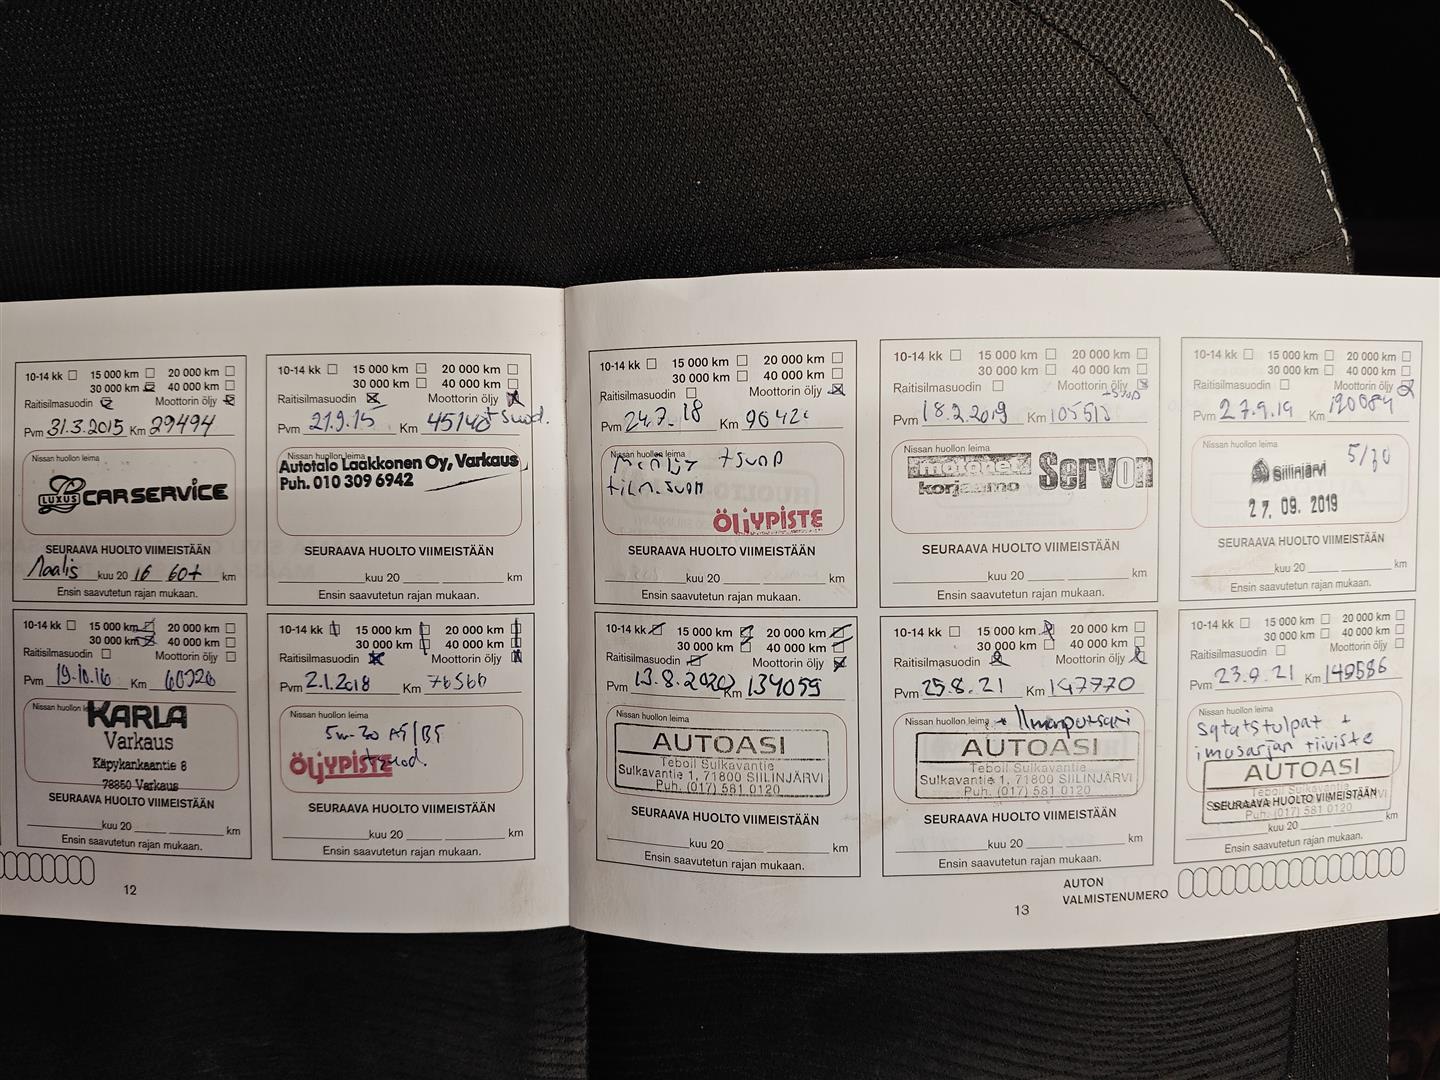 10-14 kk 15 000 km 20 000 km
30 000 km 40 000 km
Raitisilmasuodin Moottorin öljy
Pvm 31.3.2015 Km 29494
Nissan huollon leima
LUXUS CARSERVICE
SEURAAVA HUOLTO VIIMEISTÄÄN
Maalis kuu 20 16 60t km
Ensin saavutetun rajan mukaan.
10-14 kk 15 000 km 20 000 km
30 000 km 40 000 km
Raitisilmasuodin Moottorin öljy
Pvm 21.9.15 Km 45140 + suod.
Nissan huollon leima
Autotalo Laakkonen Oy, Varkaus
Puh. 010 309 6942
SEURAAVA HUOLTO VIIMEISTÄÄN
kuu 20 km
Ensin saavutetun rajan mukaan.
10-14 kk 15 000 km 20 000 km
30 000 km 40 000 km
Raitisilmasuodin Moottorin öljy
Pvm 19.10.16 Km
Nissan huollon leima
KARLA
Varkaus
Käpykankaantie 6
78850 Varkaus
SEURAAVA HUOLTO VIIMEISTÄÄN
kuu 20 km
Ensin saavutetun rajan mukaan.
10-14 kk 15 000 km 20 000 km
30 000 km 40 000 km
Raitisilmasuodin Moottorin öljy
Pvm 2.1.2018 Km
Nissan huollon leima
5w-30 A5/B5
+ suod.
ÖLJYPISTE
SEURAAVA HUOLTO VIIMEISTÄÄN
kuu 20 km
Ensin saavutetun rajan mukaan.
12
10-14 kk 15 000 km 20 000 km
30 000 km 40 000 km
Raitisilmasuodin Moottorin öljy
Pvm 24.7.18 Km
Nissan huollon leima
+ suod
ÖLJYPISTE
SEURAAVA HUOLTO VIIMEISTÄÄN
kuu 20 km
Ensin saavutetun rajan mukaan.
10-14 kk 15 000 km 20 000 km
30 000 km 40 000 km
Raitisilmasuodin Moottorin öljy
+ suod
Pvm 18.2.2019 Km
Nissan huollon leima
motonet
korjaamo Servon
SEURAAVA HUOLTO VIIMEISTÄÄN
kuu 20 km
Ensin saavutetun rajan mukaan.
10-14 kk 15 000 km 20 000 km
30 000 km 40 000 km
Raitisilmasuodin Moottorin öljy
Pvm 27.9.19 Km 120084
Nissan huollon leima
5/30
Siilinjärvi
27. 09. 2019
SEURAAVA HUOLTO VIIMEISTÄÄN
kuu 20 km
Ensin saavutetun rajan mukaan.
10-14 kk 15 000 km 20 000 km
30 000 km 40 000 km
Raitisilmasuodin Moottorin öljy
Pvm 13.8.2020 Km 134059
Nissan huollon leima
AUTOASI
Teboil Sulkavantie
Sulkavantie 1, 71800 SIILINJÄRVI
Puh. (017) 581 0120
SEURAAVA HUOLTO VIIMEISTÄÄN
kuu 20 km
Ensin saavutetun rajan mukaan.
10-14 kk 15 000 km 20 000 km
30 000 km 40 000 km
Raitisilmasuodin Moottorin öljy
Pvm 25.8.21 Km 147770
Nissan huollon leima + Ilmanputsari
AUTOASI
Teboil Sulkavantie
Sulkavantie 1, 71800 SIILINJÄRVI
Puh. (017) 581 0120
SEURAAVA HUOLTO VIIMEISTÄÄN
kuu 20 km
Ensin saavutetun rajan mukaan.
10-14 kk 15 000 km 20 000 km
30 000 km 40 000 km
Raitisilmasuodin Moottorin öljy
Pvm 23.9.21 Km 148586
Nissan huollon leima
Sytytstulpat +
imusarjan tiiviste
AUTOASI
Teboil Sulkavantie
SEURAAVA HUOLTO VIIMEISTÄÄN
Puh. (017) 581 0120
kuu 20 km
Ensin saavutetun rajan mukaan.
AUTON
VALMISTENUMERO
13